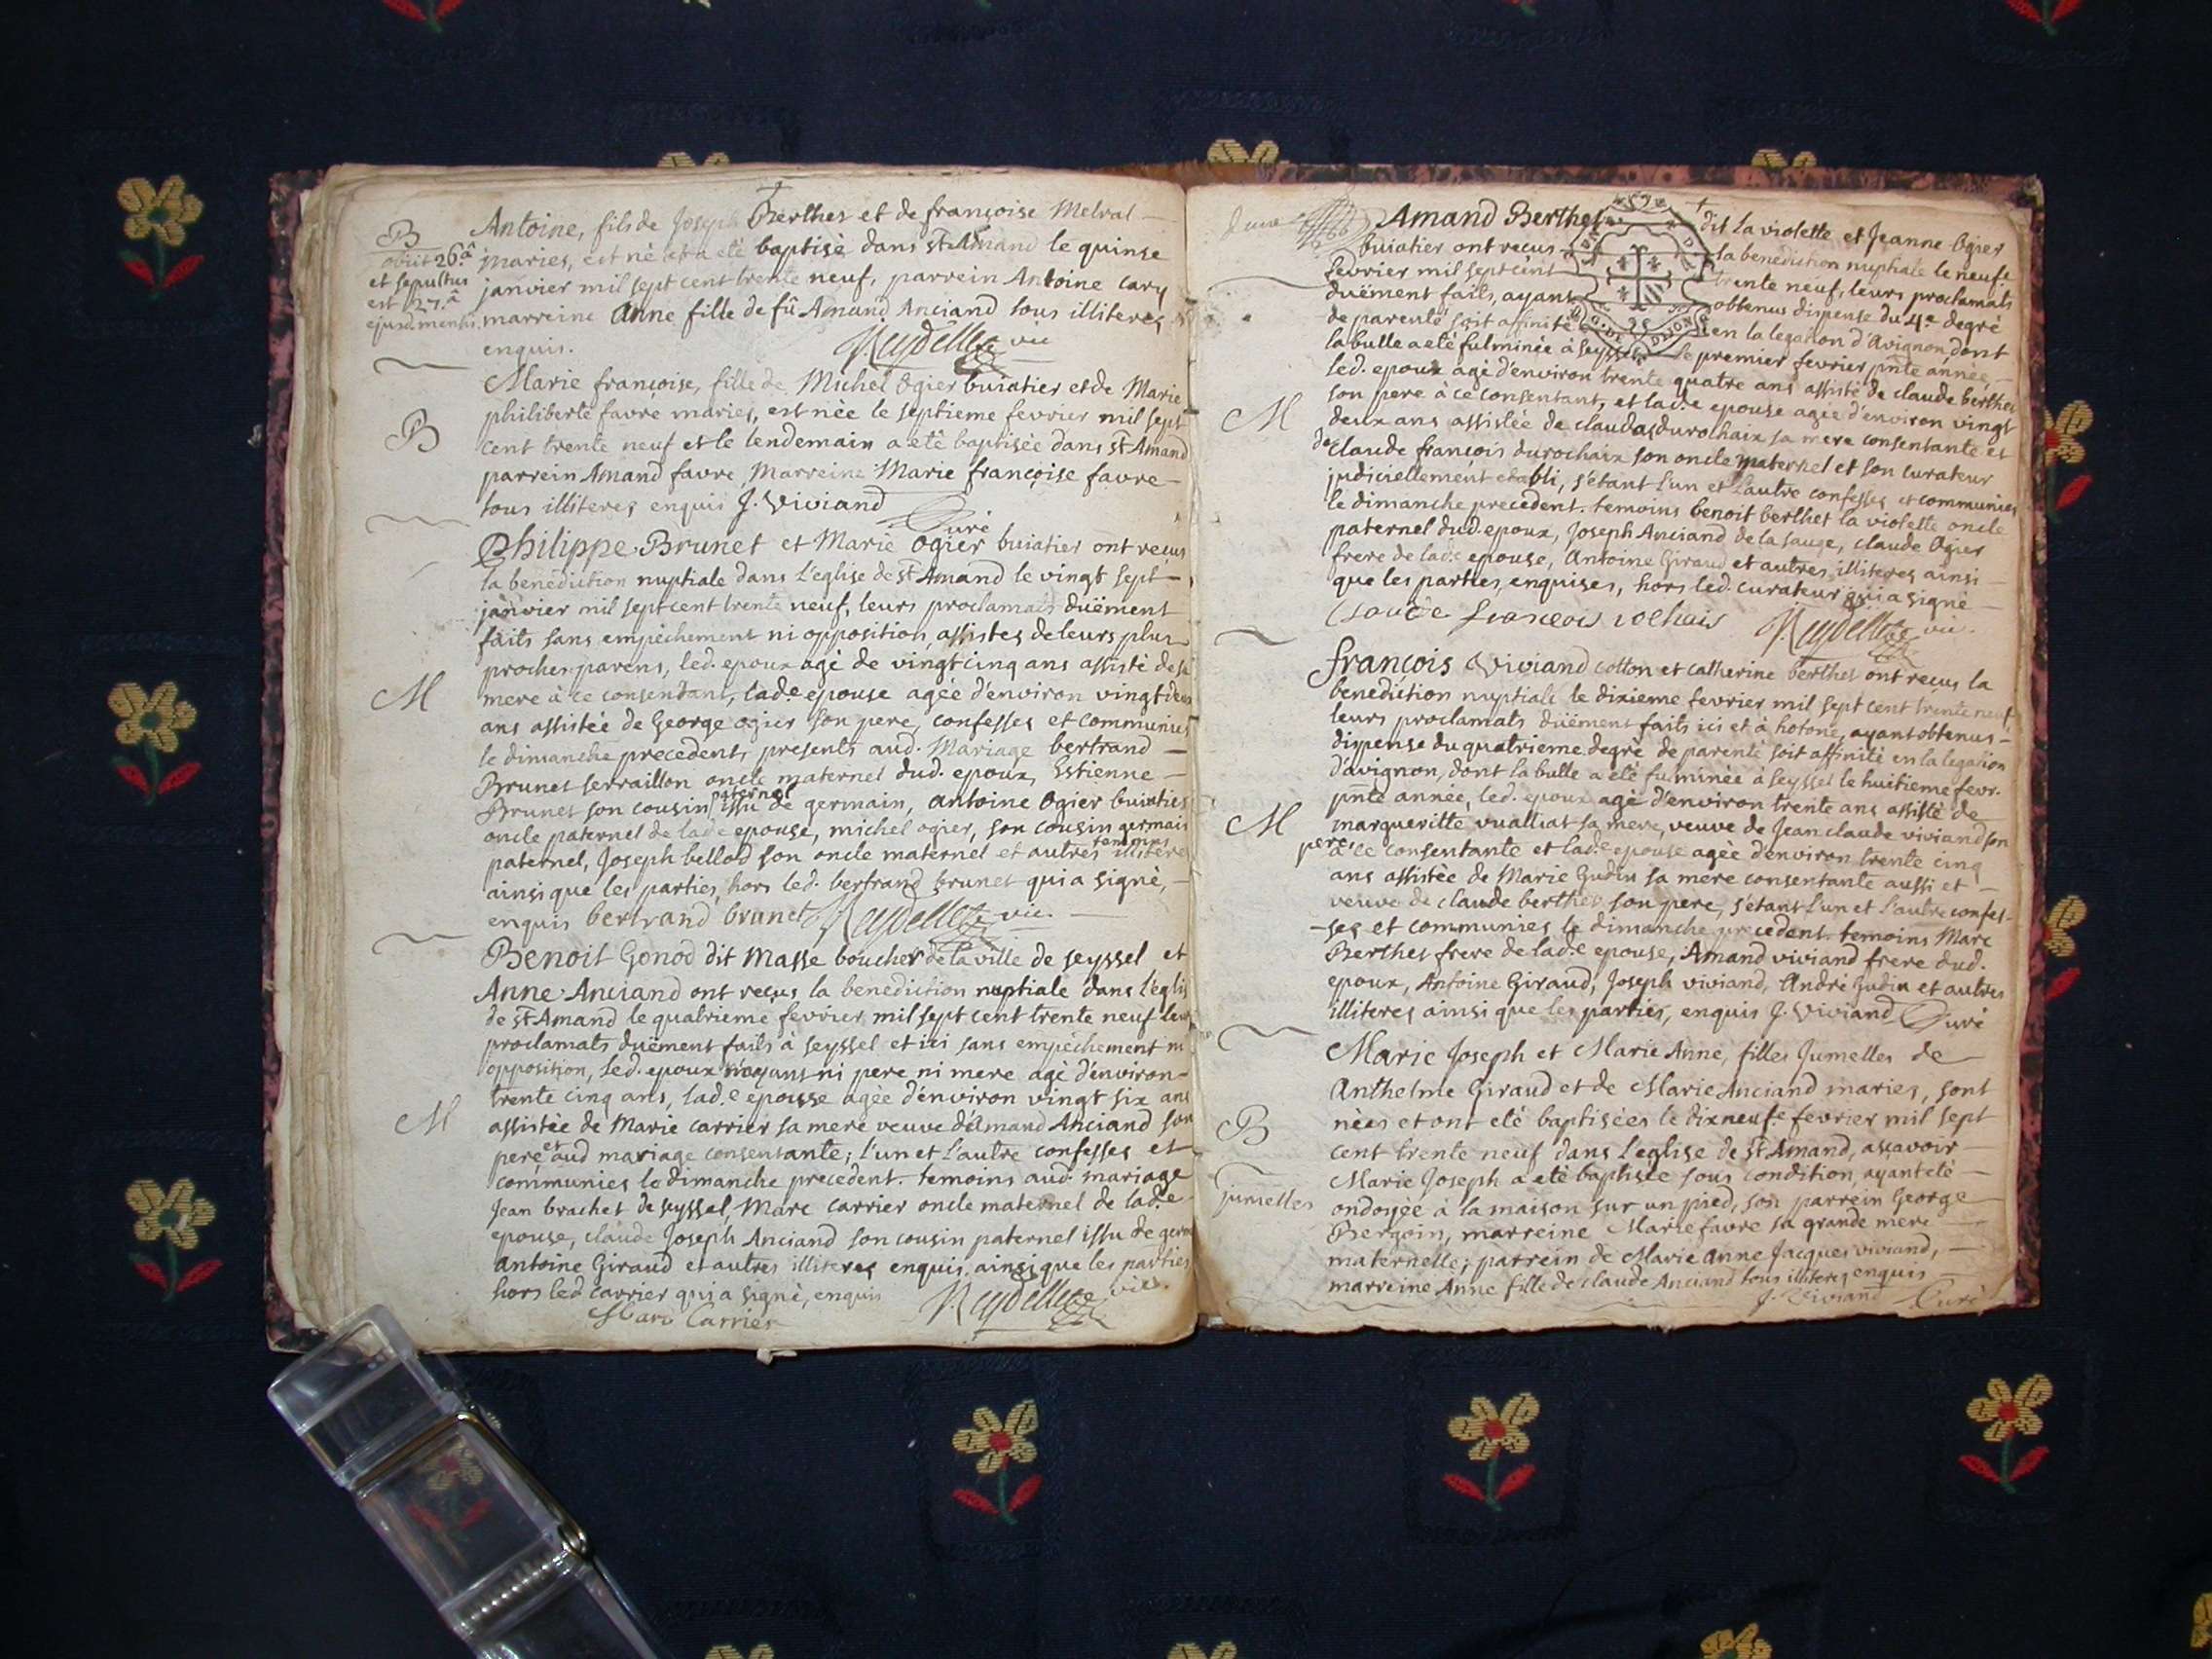 Antoine, fils de Joseph Berthet et de françoise Melral
B
mariés, est né et a eté baptisé dans st Amand le quinse
obiit 26â
janvier mil sept cent trente neuf, parrein Antoine cary
et sepultus
est 27â
marreine Anne fille de fû Amand Anciand tous illiteres
ejusd. mensis
enquis.
Reydellet vic
Marie françoise, fille de Michel Ogier buiatier et de Marie
philiberte favre mariés, est née le septieme fevrier mil sept
B
cent trente neuf et le lendemain a eté baptisée dans st Amand
parrein Amand favre, Marreine Marie françoise favre
tous illiteres enquis J. Viviand
Curé
Philippe Brunet et Marie Ogier buiatier ont reçus
la benediction nuptiale dans l'eglise de st Amand le vingt sept
janvier mil sept cent trente neuf, leurs proclamats duëment
faits sans empêchement ni opposition, assistes de leurs plus
proches parens, led. epoux agé de vingt cinq ans assisté de sa
M
mere à ce consendant, lad.e epouse agée d'environ vingt deux
ans assistée de George ogier son pere, confesses et communies
le dimanche precedent, presents aud. Mariage bertrand
Brunet serraillon oncle maternel dud. epoux, Estienne
paternel
Brunet son cousin issu de germain, antoine Ogier buiatier
oncle paternel de lad.e epouse, michel ogier, son cousin germain
temoins
paternel, Joseph bellod son oncle maternel et autres illiteres
ainsi que les parties, hors led. bertrand brunet qui a signé,
enquis bertrand brunet Reydellet vic.
Benoit Gonod dit Masse boucher de la ville de seyssel et
Anne Anciand ont reçus la benediction nuptiale dans l'eglis
de st Amand le quatrieme fevrier mil sept cent trente neuf leur
proclamats duëment faits à seyssel et ici sans empêchement ni
opposition, led. epoux n'ayant ni pere ni mere agé d'environ
trente cinq ans, lad.e epousse agée d'environ vingt six ans
M
assistée de Marie carrier sa mere veuve d'Amand Anciand son
pere et aud mariage consentante; l'un et l'autre confesses et
communies le dimanche precedent. temoins aud. mariage
Jean brachet de seyssel, Marc carrier oncle maternel de lad.e
epouse, claude Joseph Anciand son cousin paternel issu de germ
Antoine Giraud et autres illiteres enquis, ainsi que les parties
hors led carrier qui a signé, enquis Reydellet vic.
Marc Carrier
Amand Berthet dit la violette et Jeanne Ogier
buiatier ont reçus la benediction nuptiale le neuf.e
fevrier mil sept cent trente neuf, leurs proclamats
duëment faits, ayant obtenus dispense du 4e degré
de parenté soit affinité en la legation d'Avignon, dont
la bulle a eté fulminée à seyssel le premier fevrier pnte année,
led. epoux agé d'environ trente quatre ans assisté de claude berthet
son pere à ce consentant, et lad.e epouse agée d'environ vingt
M
deux ans assistée de claudas durochaix sa mere consentante et
de claude françois durochaix son oncle maternel et son curateur
judiciellement etabli, s'étant l'un et l'autre confesses et communies
le dimanche precedent. temoins benoit berthet la violette oncle
paternel dud. epoux, Joseph Anciand de la sauge, claude Ogier
frere de lad.e epouse, Antoine Giraud et autres illiteres ainsi
que les parties, enquises, hors led. curateur qui a signé
Claude françois rochais Reydellet vic.
françois Viviand cotton et catherine berthet ont reçus la
benediction nuptiale le dixieme fevrier mil sept cent trente neuf,
leurs proclamats duëment faits ici et à hotone, ayant obtenus
dispense du quatrieme degré de parenté soit affinité en la legation
d'avignon, dont la bulle a eté fuminée à seyssel le huitieme fevr.
pnte année, led. epoux agé d'environ trente ans assisté de
M
marqueritte vualliat sa mere, veuve de Jean claude viviand son
pere, à ce consentante et lad.e epouse agée d'environ trente cinq
ans assistée de Marie Gudin sa mere consentante aussi et
veuve de claude berthet son pere, s'étant l'un et l'autre confes-
-ses et communies le dimanche precedent. temoins Marc
Berthet frere de lad.e epouse, Amand viviand frere dud.
epoux, Antoine Giraud, Joseph viviand, André Gudin et autres
illiteres ainsi que les parties, enquis J. Viviand Curé
Marie Joseph et Marie Anne, filles Jumelles de
Anthelme Giraud et de Marie Anciand maries, sont
B
nées et ont eté baptisées le dixneuf.e fevrier mil sept
cent trente neuf dans l'eglise de st Amand, asçavoir
Marie Joseph a eté baptisée sous condition, ayant eté
jumelles
ondoyée à la maison sur un pied, son parrein George
Bergoin, marreine Marie favre sa grande mere
maternelle; parrein de Marie Anne Jacques viviand,
marreine Anne fille de claude Anciand tous illiteres enquis
J. Viviand Curé